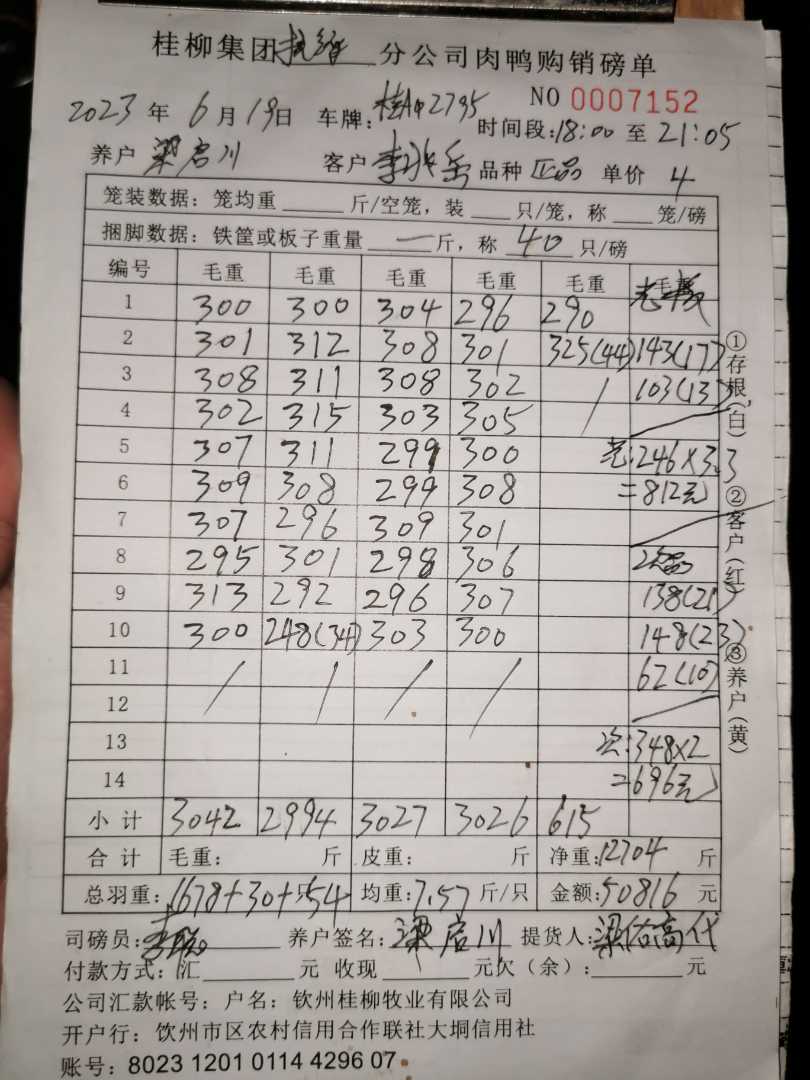 桂柳集团 分公司肉鸭购销磅单
NO 0007152
2023年6月19日 车牌:桂A02795 时间段:18:00至21:05
养户 梁启川 客户 李 岳 品种 正品 单价 4
笼装数据:笼均重____斤/空笼,装___只/笼,称___笼/磅
捆脚数据:铁筐或板子重量 一 斤,称 40 只/磅
编号 毛重 毛重 毛重 毛重 毛重 毛重
1 300 300 304 296 290
2 301 312 308 301 325(44) 143(17)
3 308 311 308 302 / 103(13)
4 302 315 303 305
5 307 311 299 300 老:246×3.3
6 309 308 299 308 =812元
7 307 296 309 301
8 295 301 298 306 次品
9 313 292 296 307 138(21)
10 300 248(34) 303 300 148(23)
11 / / / / 62(10)
12
13 次:348×2
14 =696元
小计 3042 2994 3027 3026 615
合计 毛重: 斤 皮重: 斤 净重:12704 斤
总羽重:1678+30+54只 均重:7.57斤/只 金额:50816元
司磅员: 养户签名:梁启川 提货人:梁佑高代
付款方式:汇____元 收现____元欠(余):____元
公司汇款帐号:户名:钦州桂柳牧业有限公司
开户行:钦州市区农村信用合作联社大垌信用社
账号:8023 1201 0114 4296 07
①存根(白) ②客户(红) ③养户(黄)